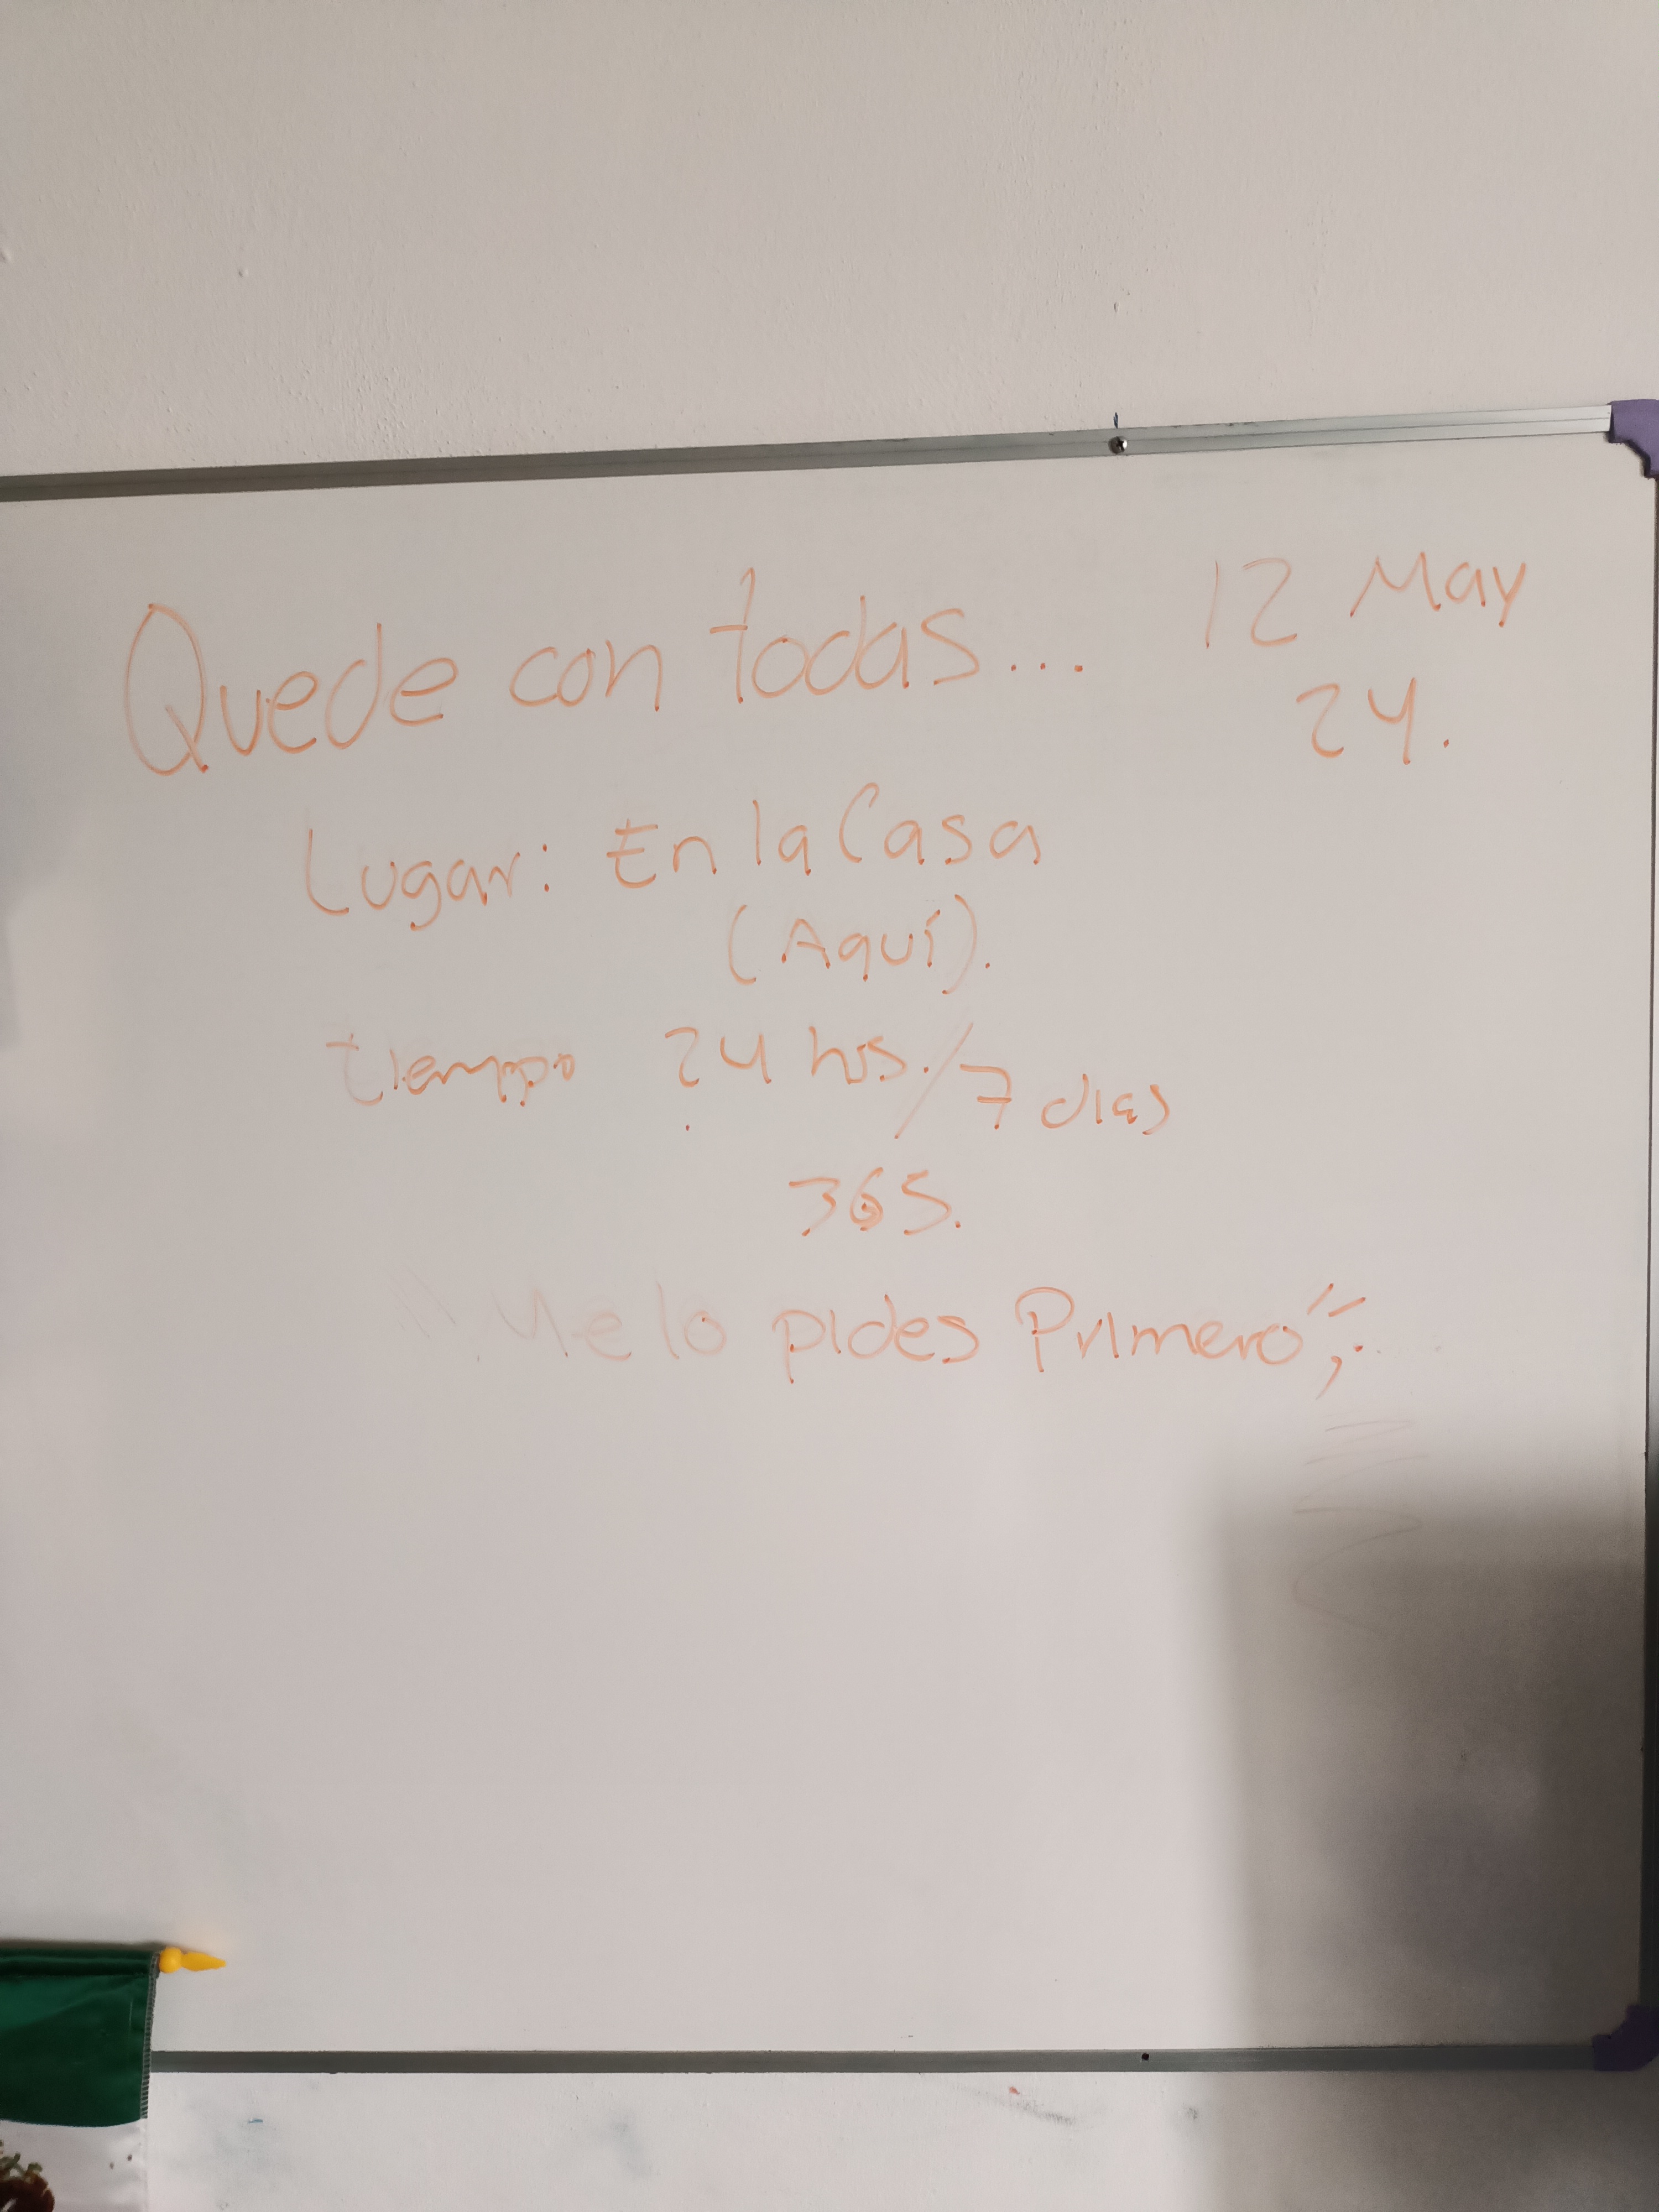 Quede con todas... 12 May
24.
Lugar: En la Casa
(Aquí).
tiempo 24 hrs./7 dias
365.
"Me lo pides Primero",.